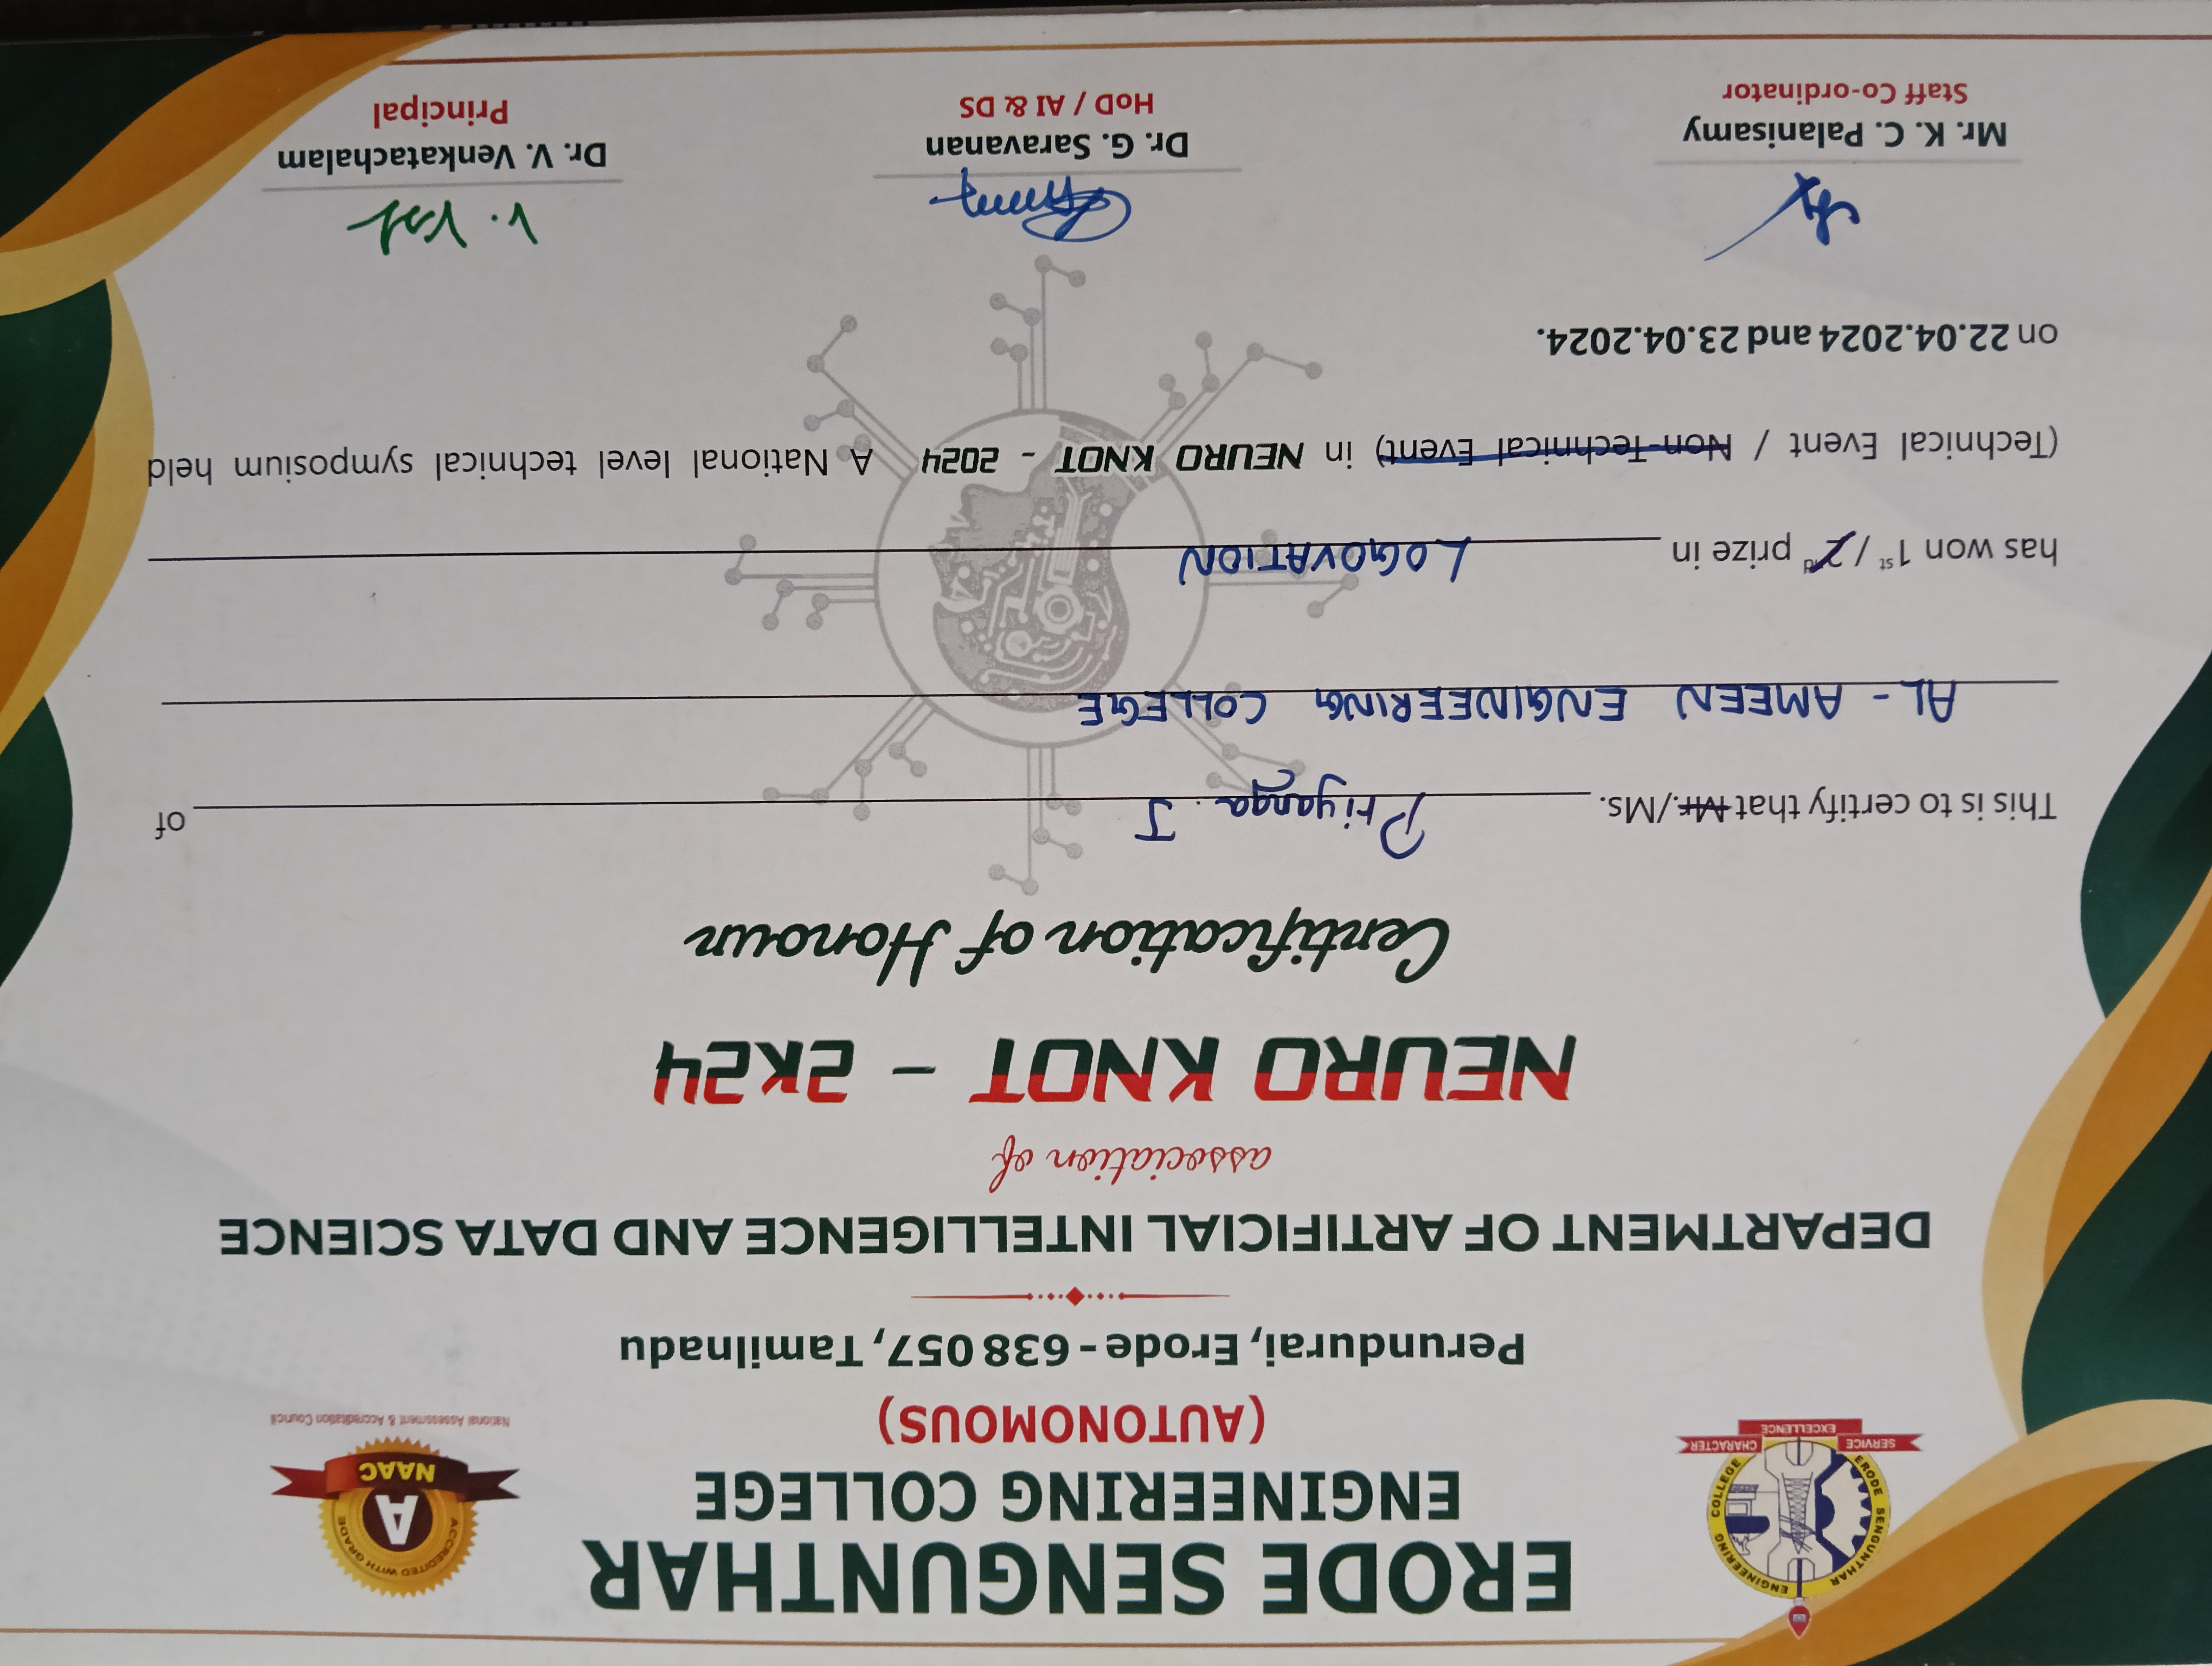 ERODE SENGUNTHAR ENGINEERING COLLEGE
SERVICE EXCELLENCE CHARACTER
ERODE SENGUNTHAR
ENGINEERING COLLEGE
(AUTONOMOUS)
Perundurai, Erode - 638 057, Tamilnadu
ACCREDITED WITH GRADE
A
NAAC
National Assessment & Accreditation Council
DEPARTMENT OF ARTIFICIAL INTELLIGENCE AND DATA SCIENCE
association of
NEURO KNOT - 2K24
Certification of Honour
This is to certify that Mr./Ms. Priyanga. J of
AL - AMEEN ENGINEERING COLLEGE
has won 1st / 2nd prize in LOGOVATION
(Technical Event / Non-Technical Event) in NEURO KNOT - 2024 A National level technical symposium held
on 22.04.2024 and 23.04.2024.
V. 
Mr. K. C. Palanisamy Dr. G. Saravanan Dr. V. Venkatachalam
Staff Co-ordinator HoD / AI & DS Principal